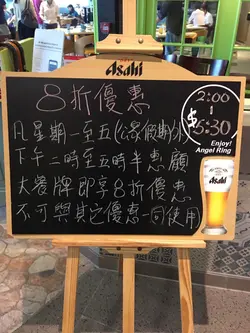 Asahi
8折優惠
2:00
5:30
凡星期一至五(公眾假期外)
下午二時至五時半惠顧
大餐牌即享8折優惠
不可與其它優惠一同使用
Enjoy!
Angel Ring
Asahi